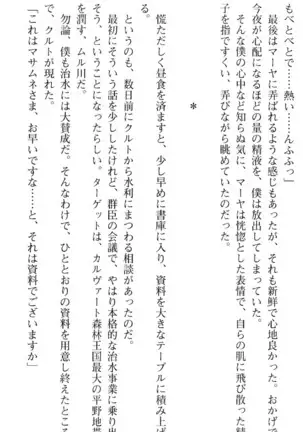 もべとべとで……熱い……んふふっ」
　最後はマーヤに弄ばれるような感じもあったが、それも新鮮で心地良かった。おかげで
今夜が心配になるほどの量の精液を、僕は放出してしまっていた。
　そんな僕の心中など知らぬ気に、マーヤは恍惚とした表情で、自らの肌に飛び散った精
子を指ですくい、弄びながら眺めていたのだった。
＊
　慌ただしく昼食を済ますと、少し早めに書庫に入り、資料を大きなテーブルに積み上げ
る。
　というのも、数日前にクルトから水利にまつわる相談があったのだ。
　最初にそういう話を少ししたけれど、群臣の会議で、やはり本格的な治水事業に乗り出
そう、ということになったらしい。ターゲットは、カルヴァート森林王国最大の平野地帯
を潤す、ムル川だ。
　勿論、僕も治水には大賛成だ。そんなわけで、ひととおりの資料を用意し終えたところ
で、クルトが現れた。
「これはマサムネさま、お早いですな……と、それは資料でございますか」